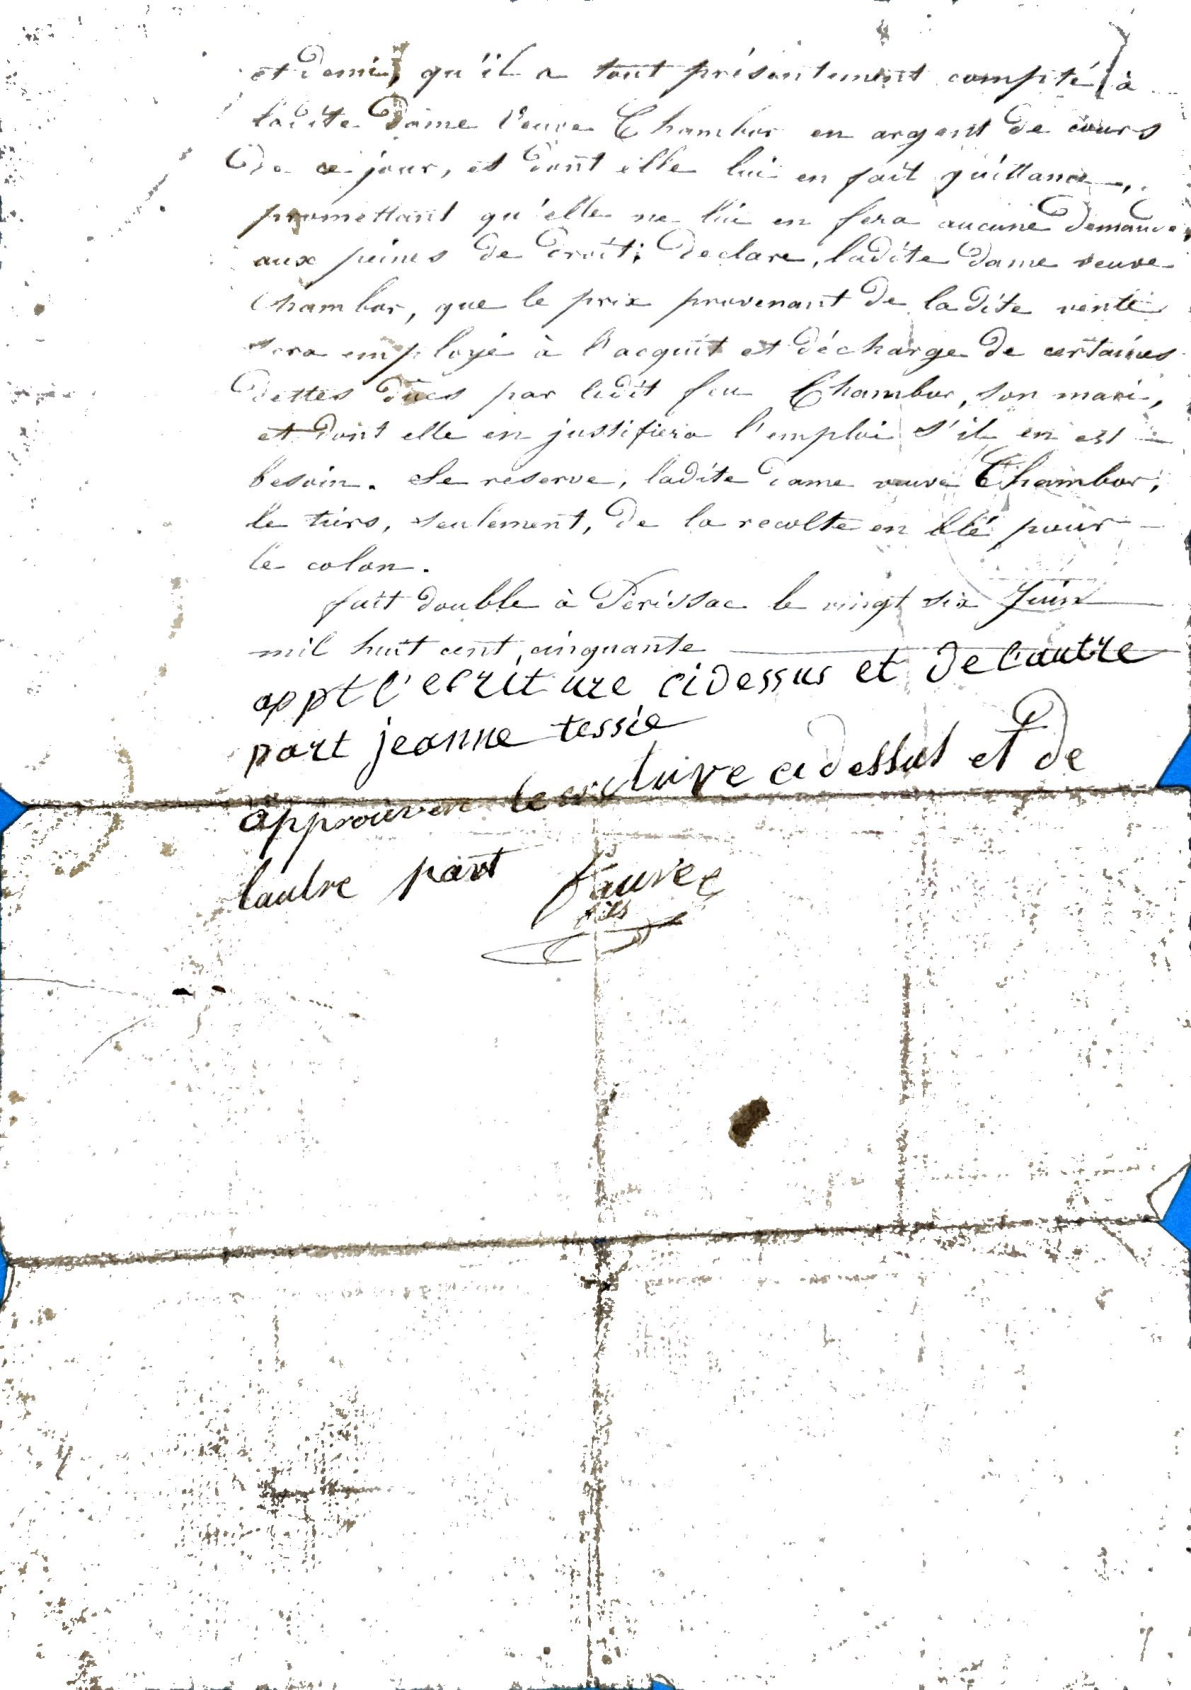 et demi, qu'il a tout présentement compté à
ladite Dame Veuve Chambor en argent de cours
De ce jour, et dont elle lui en fait quittance,
promettant qu'elle ne lui en fera aucune Demande,
aux peines de droit; Declare, ladite dame veuve
Chambor, que le prix provenant De ladite vente
sera employé à l'acquit et décharge De certaines
Dettes dues par ledit feu Chambor, son mari,
et dont elle en justifiera l'emploi s'il en est
besoin. Se reserve, ladite dame veuve Chambor,
le tiers, seulement, De la recolte en blé pour
le colon.
fait double à Perissac le vingt six Juin
mil huit cent cinquante
appt l'ecriture cidessus et De l'autre
part jeanne tessie
approuven ci dessus et de
lautre part fauree
fils